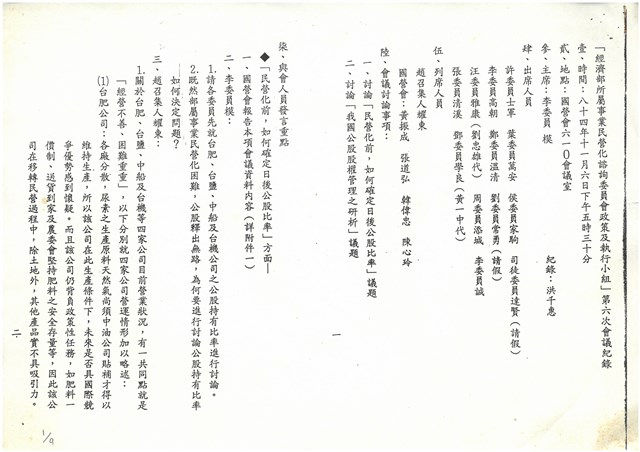 「經濟部所屬事業民營化諮詢委員會政策及執行小組」第六次會議紀錄
壹、時間：八十四年十一月六日下午五時三十分
貳、地點：國營會六一〇會議室
參、主席：李委員 模　紀錄：洪千惠
肆、出席人員
許委員士軍　葉委員萬安　侯委員家駒　司徒委員達賢（請假）
李委員高朝　鄭委員溫清　劉委員常勇（請假）
汪委員雅康（劉忠雄代）　周委員添城　李委員誠
張委員清溪　鄭委員學良（黃一中代）
伍、列席人員
趙召集人耀東
國營會：黃振成　張道弘　韓偉忠　陳心玲
陸、會議討論事項：
一、討論「民營化前，如何確定日後公股比率」議題
二、討論「我國公股股權管理之研析」議題
一
柒、與會人員發言重點
◆「民營化前，如何確定日後公股比率」方面—
一、國營會報告本項會議資料內容（詳附件一）
二、李委員模：
1.請各委員先就台肥、台鹽、中船及台機公司之公股持有比率進行討論。
2.既然部屬事業民營化困難，公股釋出無路，為何要進行討論公股持有比率
如何決定問題？
三、趙召集人耀東：
1.關於台肥、台鹽、中船及台機等四家公司目前營業狀況，有一共同點就是
「經營不善、困難重重」，以下分別就四家公司營運情形加以略述：
(1)台肥公司：各廠分散，尿素之生產原料天然氣尚須中油公司貼補才得以
維持生產，所以該公司在此生產條件下，未來是否具國際競
爭優勢感到懷疑。而且該公司仍背負政策性任務，如肥料一
價制、送貨到家及農委會堅持肥料之安全存量等，因此該公
司在移轉民營過程中，除土地外，其他產品實不具吸引力。
二
1/9